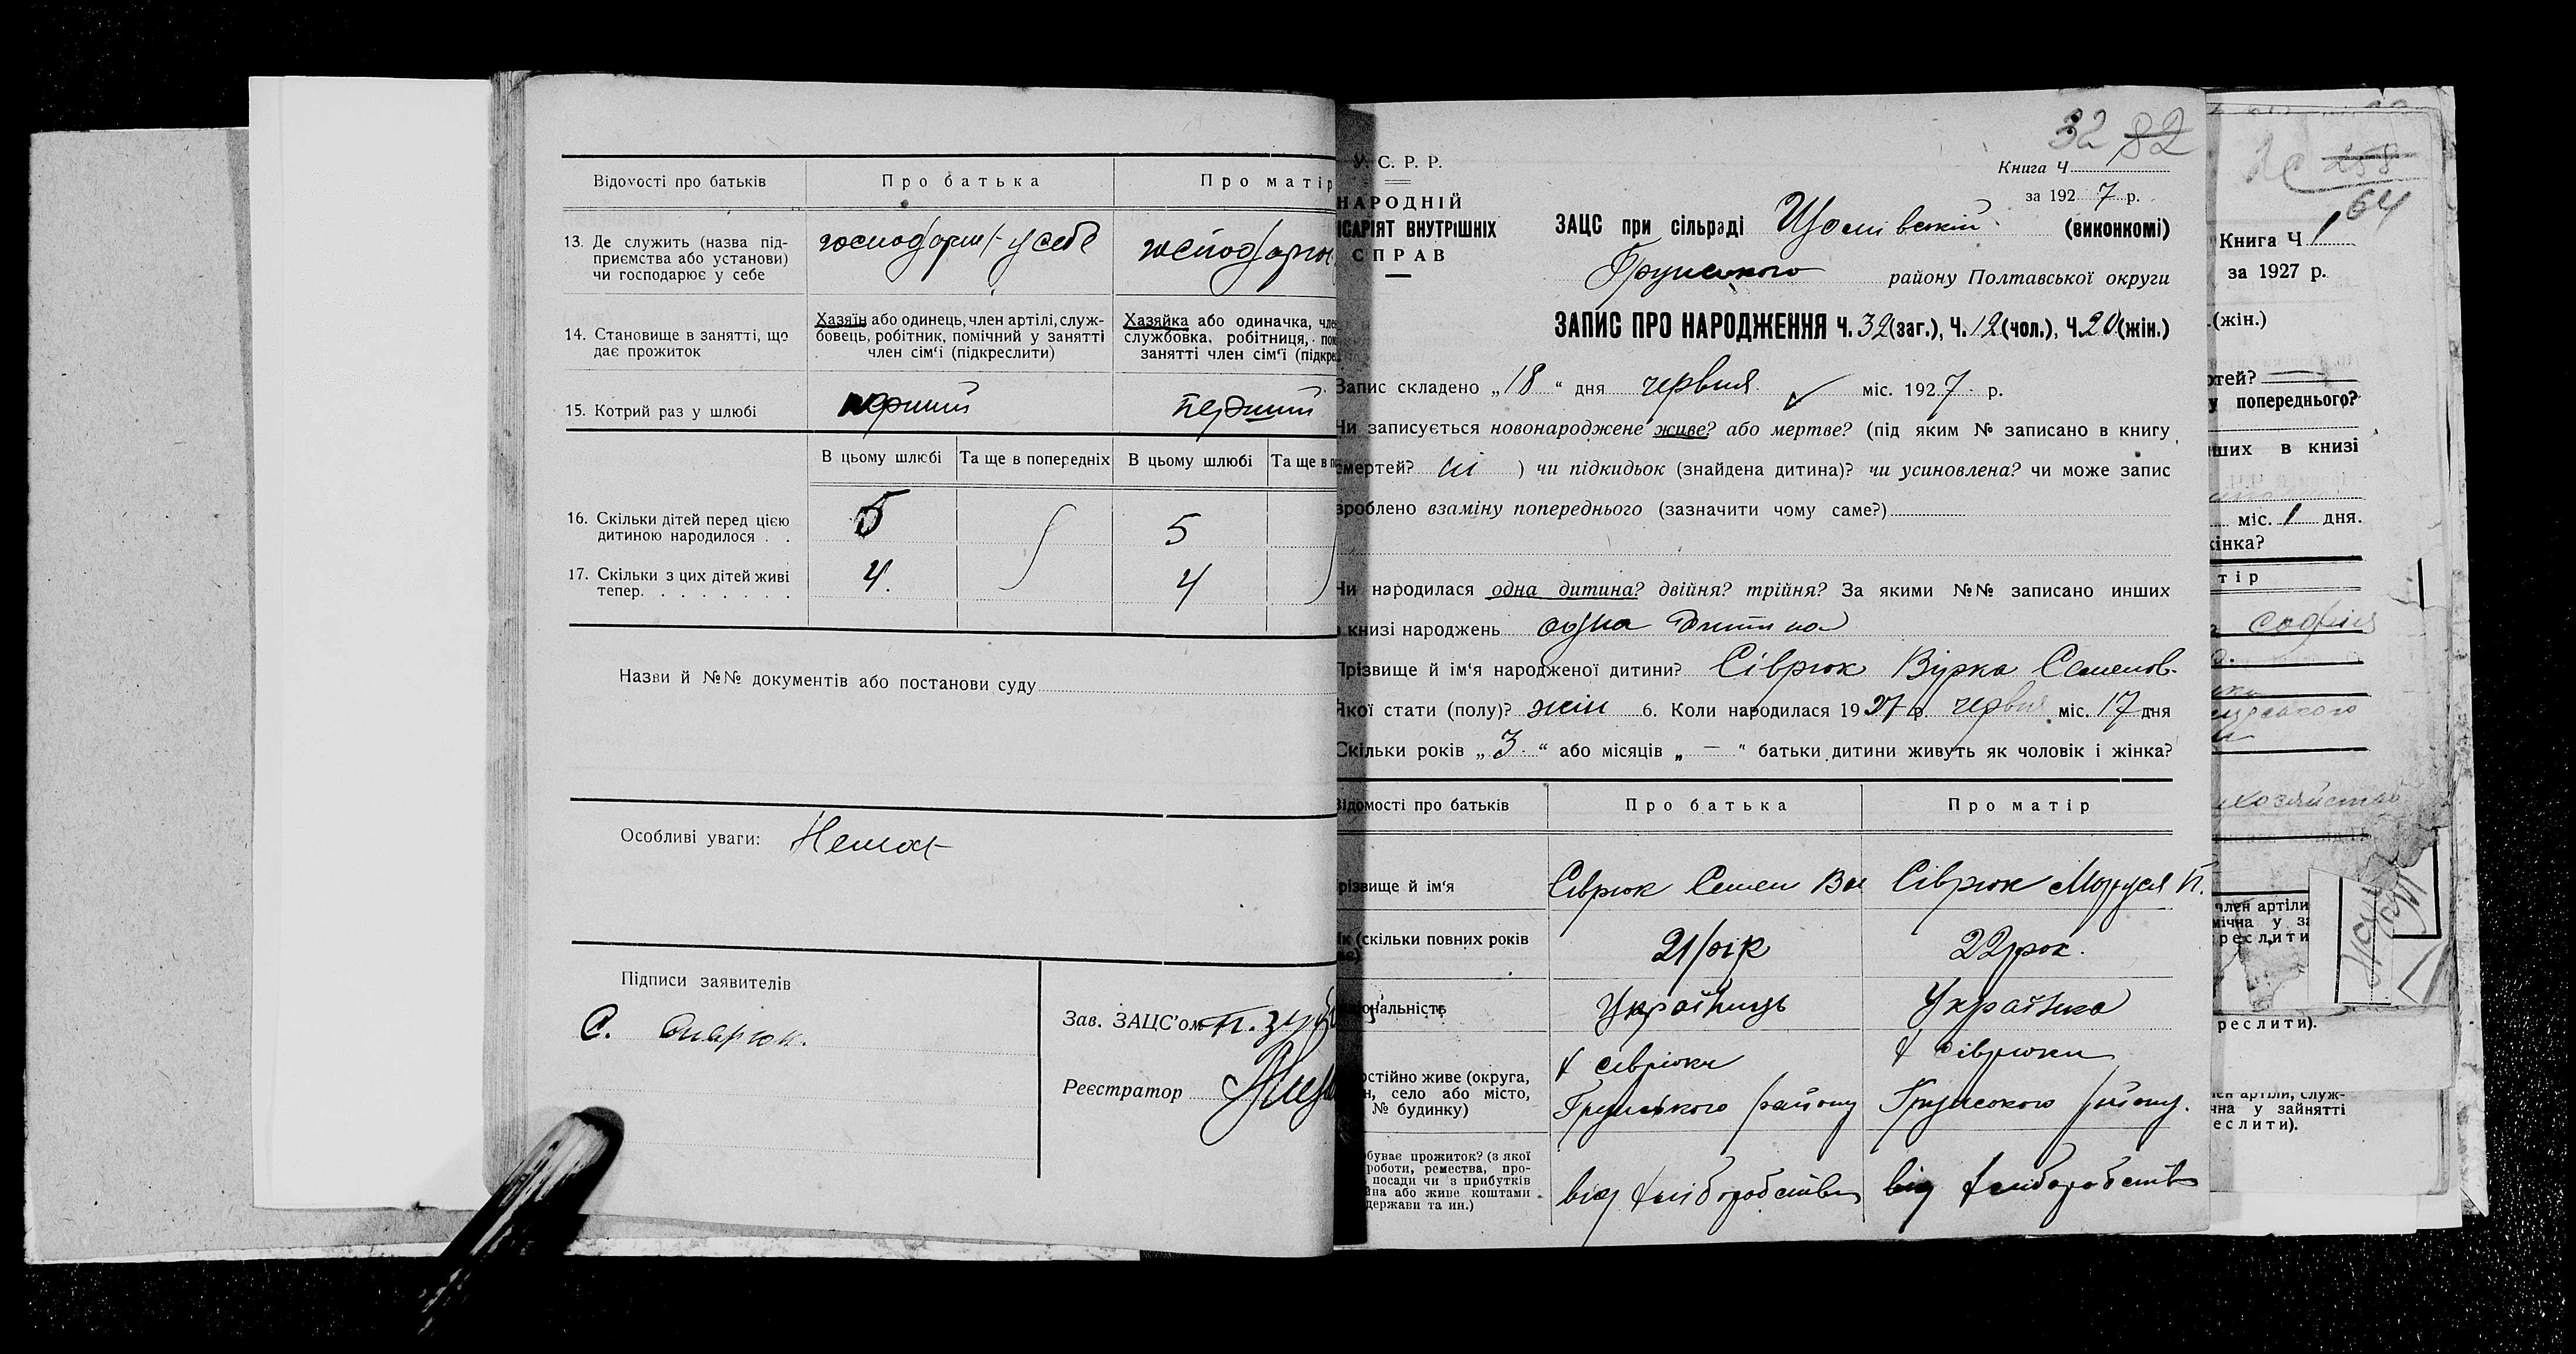 Відомості про батьків
Про батька
Про матір
13. Де служить (назва під-
приємства або установи)
чи господарює у себе
у себе
14. Становище в занятті, що
дає прожиток
Хазяїн або одинець, член артілі, служ-
бовець, робітник, помічний у занятті
член сім‘ї (підкреслити)
Хазяйка або одиначка, чле
службовка, робітниця,
занятті член сім‘ї (підкре
15. Котрий раз у шлюбі
перший
перший
В цьому шлюбі
Та ще в попередніх
В цьому шлюбі
Та ще в п
16. Скільки дітей перед цією
дитиною народилося . .
5
5
17. Скільки з цих дітей живі
тепер. . . . . . . .
4.
4
Назви й №№ документів або постанови суду
Особливі уваги: Немає
Підписи заявителів
С.
Зав. ЗАЦС’ом
Реєстратор
32 82
У. С. Р. Р.
НАРОДНІЙ
ІСАРІЯТ ВНУТРІШНІХ
СПРАВ
Книга Ч
за 1927 р.
ЗАЦС при сільраді (виконкомі)
Грунського району Полтавської округи
ЗАПИС ПРО НАРОДЖЕННЯ Ч. 32 (заг.), Ч. 12 (чол.), Ч. 20 (жін.)
Запис складено „18“ дня червня міс. 1927 р.
Чи записується новонароджене живе? або мертве? (під яким № записано в книгу
смертей? ні ) чи підкидьок (знайдена дитина)? чи усиновлена? чи може запис
зроблено взаміну попереднього (зазначити чому саме?)
Чи народилася одна дитина? двійня? трійня? За якими №№ записано инших
в книзі народжень одна дитина
Прізвище й ім‘я народженої дитини? Сіврюк Вірка Семенов.
Якої стати (полу)? жін 6. Коли народилася 1927 р. червня міс. 17 дня
Скільки років „3“ або місяців „—“ батьки дитини живуть як чоловік і жінка?
Відомості про батьків
Про батька
Про матір
різвище й ім‘я
Сіврюк Семен Ва
Сіврюк Маруся П.
ік (скільки повних років
21 рік
22 рок.
ональність
Українець
Українка
остійно живе (округа,
н, село або місто,
№ будинку)
х Сіврюки
Грунського району
х Сіврюки
Грунського району.
буває прожиток? (з якої
роботи, ремества, про-
посади чи з прибутків
йна або живе коштами
держави та ин.)
від хліборобства
від хліборобств
258
64
Книга Ч 1
за 1927 р.
(жін.)
ртей?
у попереднього?
нших в книзі
міс. 1 дня.
інка?
тір
софія
член артіли
мічна у за
реслити
реслити).
лен артіли, служ-
чна у зайнятті
еслити).